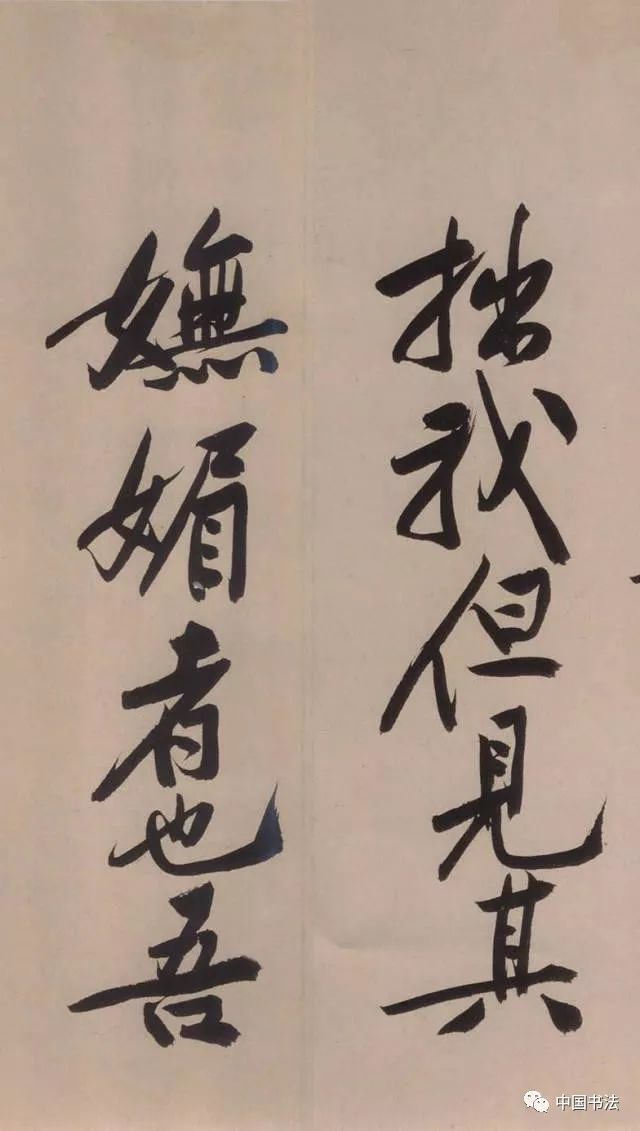 拙我但见其
嫵媚者也吾
中国书法